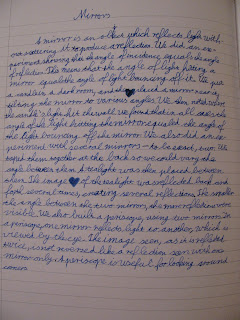 Mirrors
A mirror is an object which reflects light with-
out scattering it to produce a reflection. We did an ex-
periment showing that the angle of incidence equals angle
of reflection. This means that the angle of light hitting a
mirror equals the angle of light bouncing off it. We put
a candle in a dark room, and then placed a mirror near it,
tilting the mirror to various angles. We then noted where
the candle's light hit the wall. We found that in all cases the
angle of light hitting the mirror equaled the angle of
the light bouncing off the mirror. We also did an ex-
periment with several mirrors - to be exact, two. We
taped them together at the back so we could vary the
angle between them. A was then placed between
them. The image of the was reflected back and
forth several times, creating several reflections. The smaller
the angle between the two mirrors, the more reflections were
visible. We also built a periscope, using two mirrors. In
a periscope, one mirror reflects light to another, which is
viewed by the eye. The image seen, as it is reflected
twice, is not reversed like a reflection seen with one
mirror only. A periscope is useful for looking around
corners.